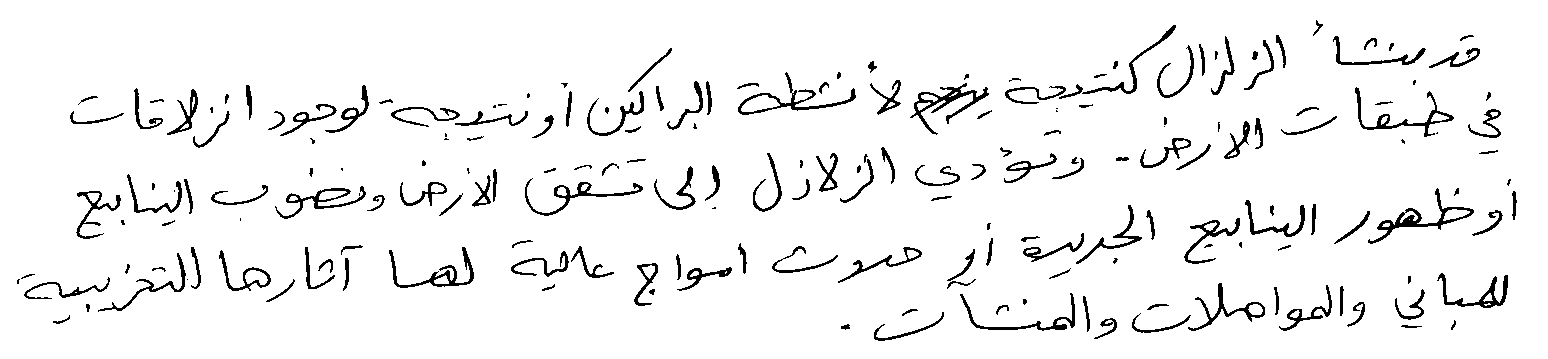 قد ينشأ الزلزال كنتيجة لأنشطة البراكين أو نتيجة لوجود انزلاقات
في طبقات الارض. وتؤدي الزلازل إلى تشقق الارض ونضوب الينابيع
أو ظهور الينابيع الجديدة أو حدوث امواج عالية لها آثارها التخريبية
للمباني والمواصلات والمنشآت.